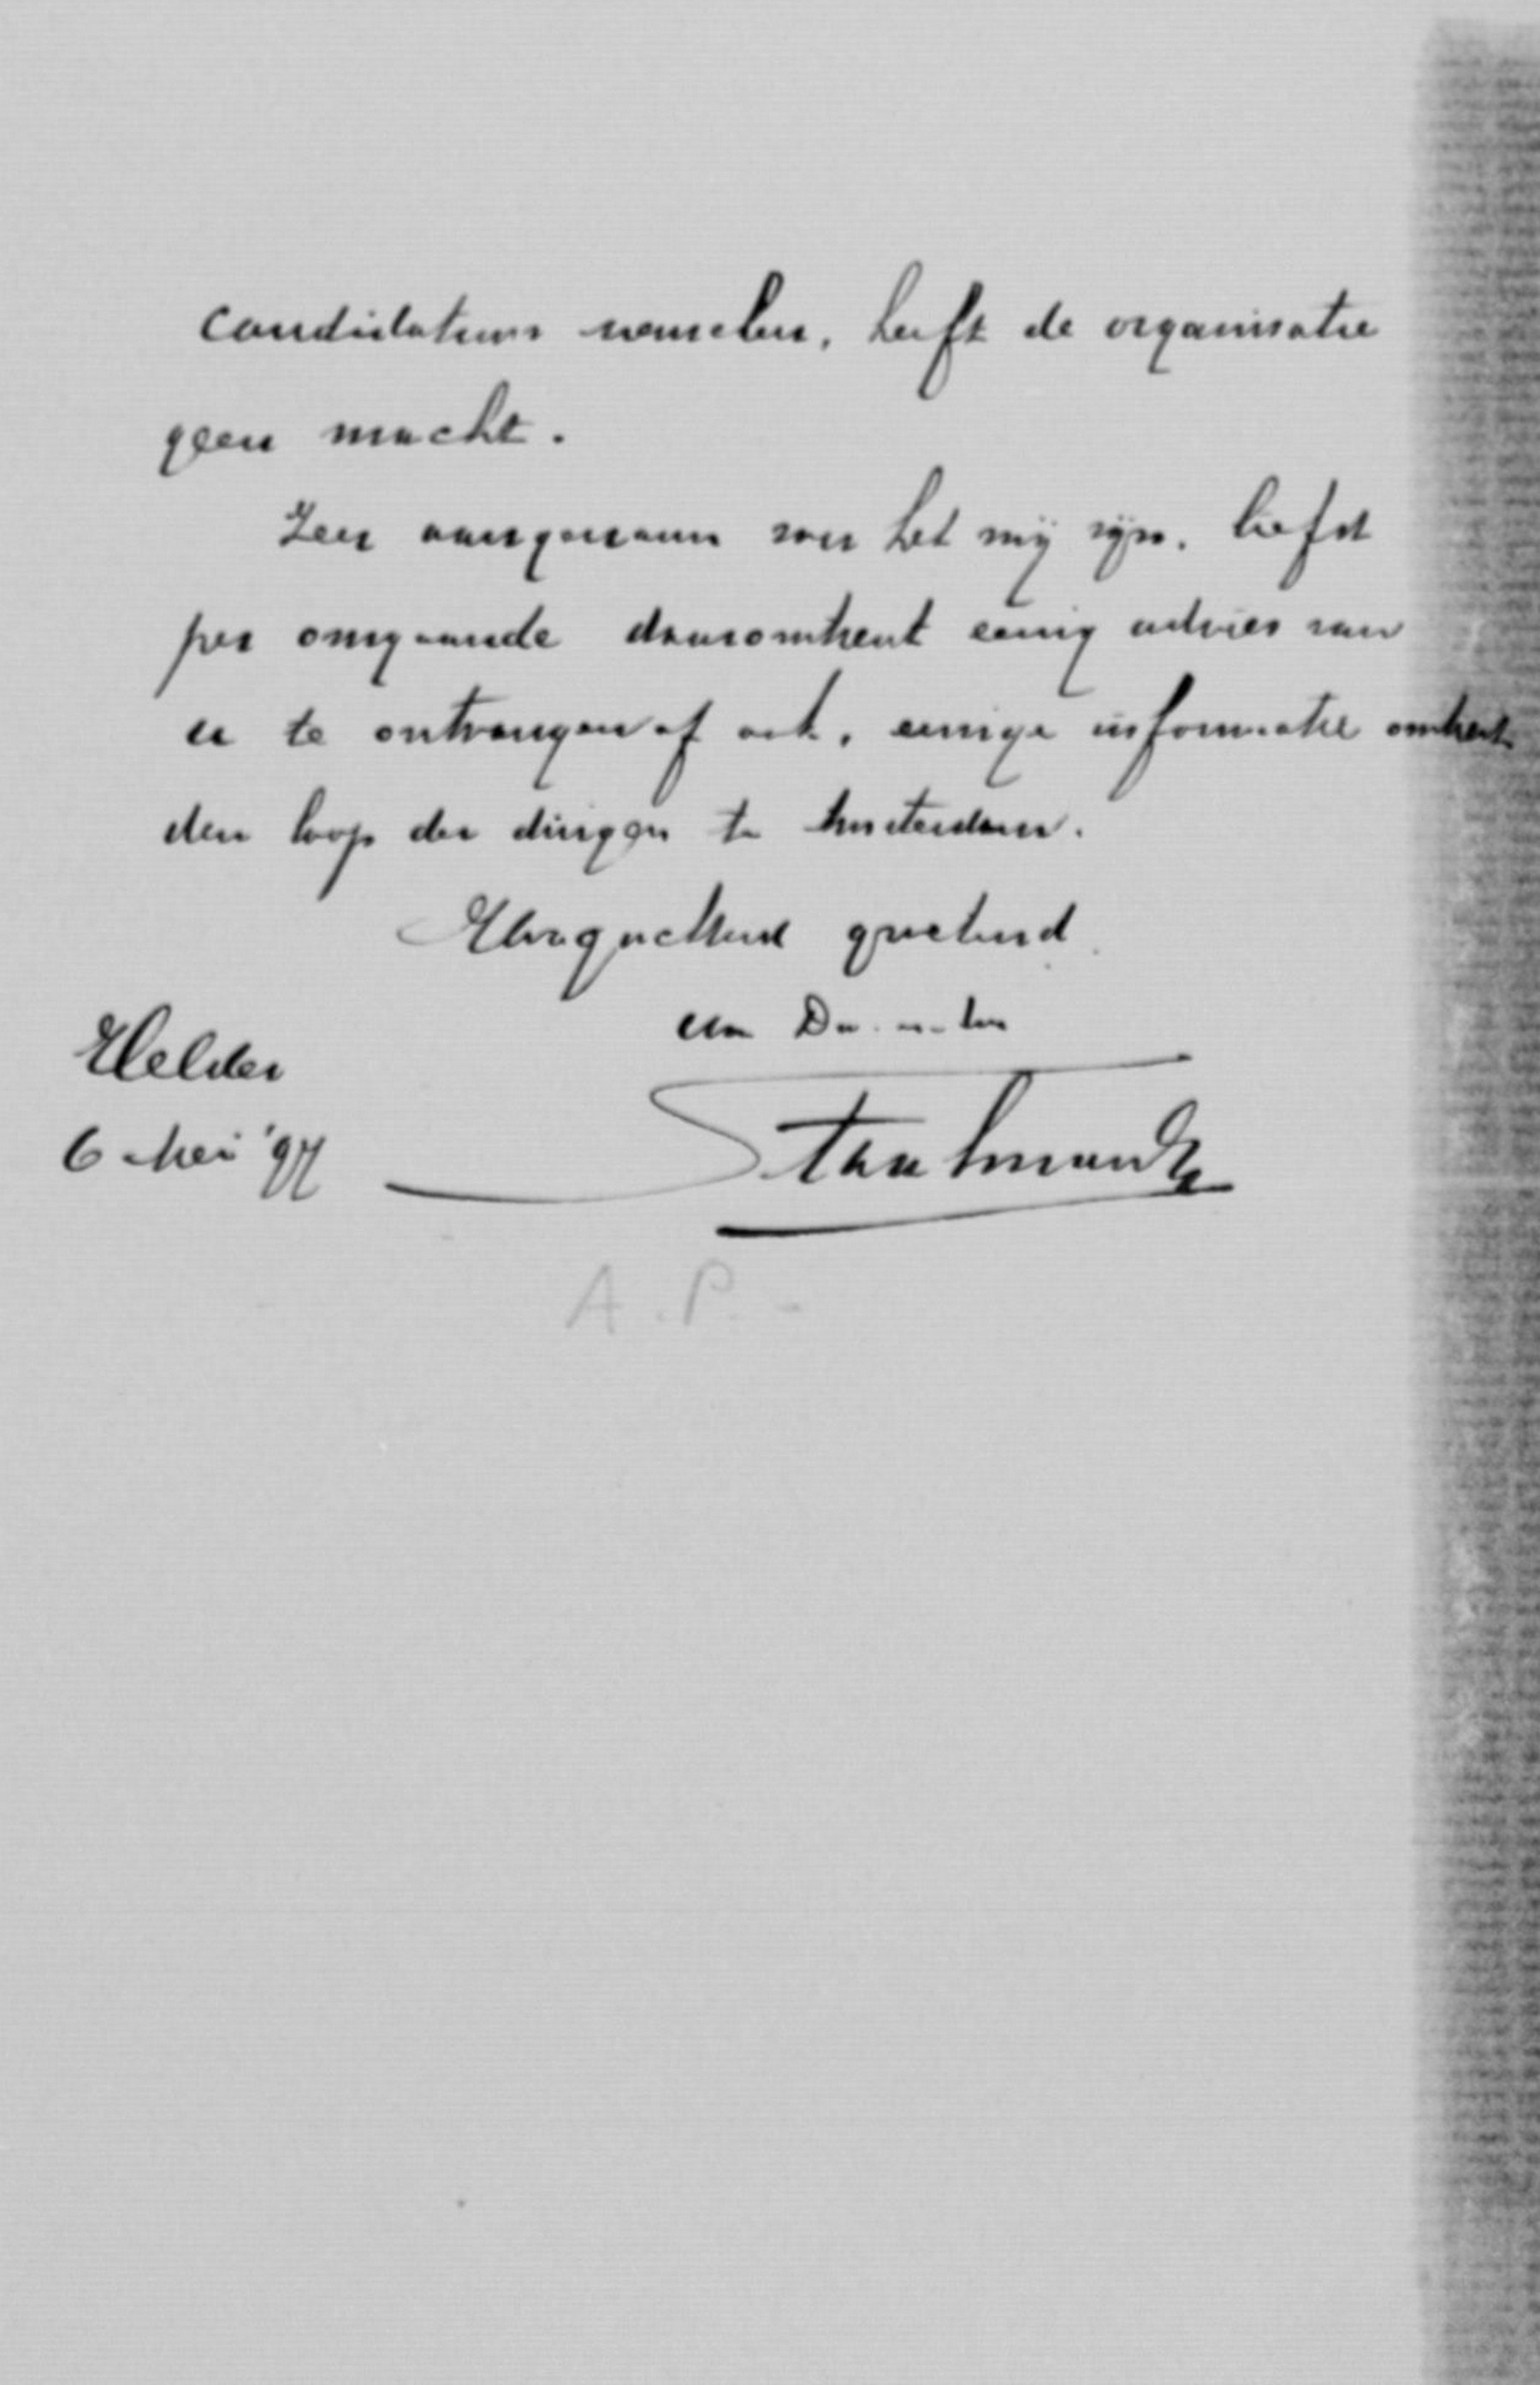 candidaturen wemelen, heeft de organisatie
geen macht.
Zeer aangenaam zou het mij zijn, liefst
per omgaande daaromtrent eenig advies van
u te ontvangen of ook, eenige informatie omtrent
den loop der dingen te Amsterdam.
Hoogachtend groetend
Uw Dw.
Helder
6 Mei '97
Staalman
A. P.